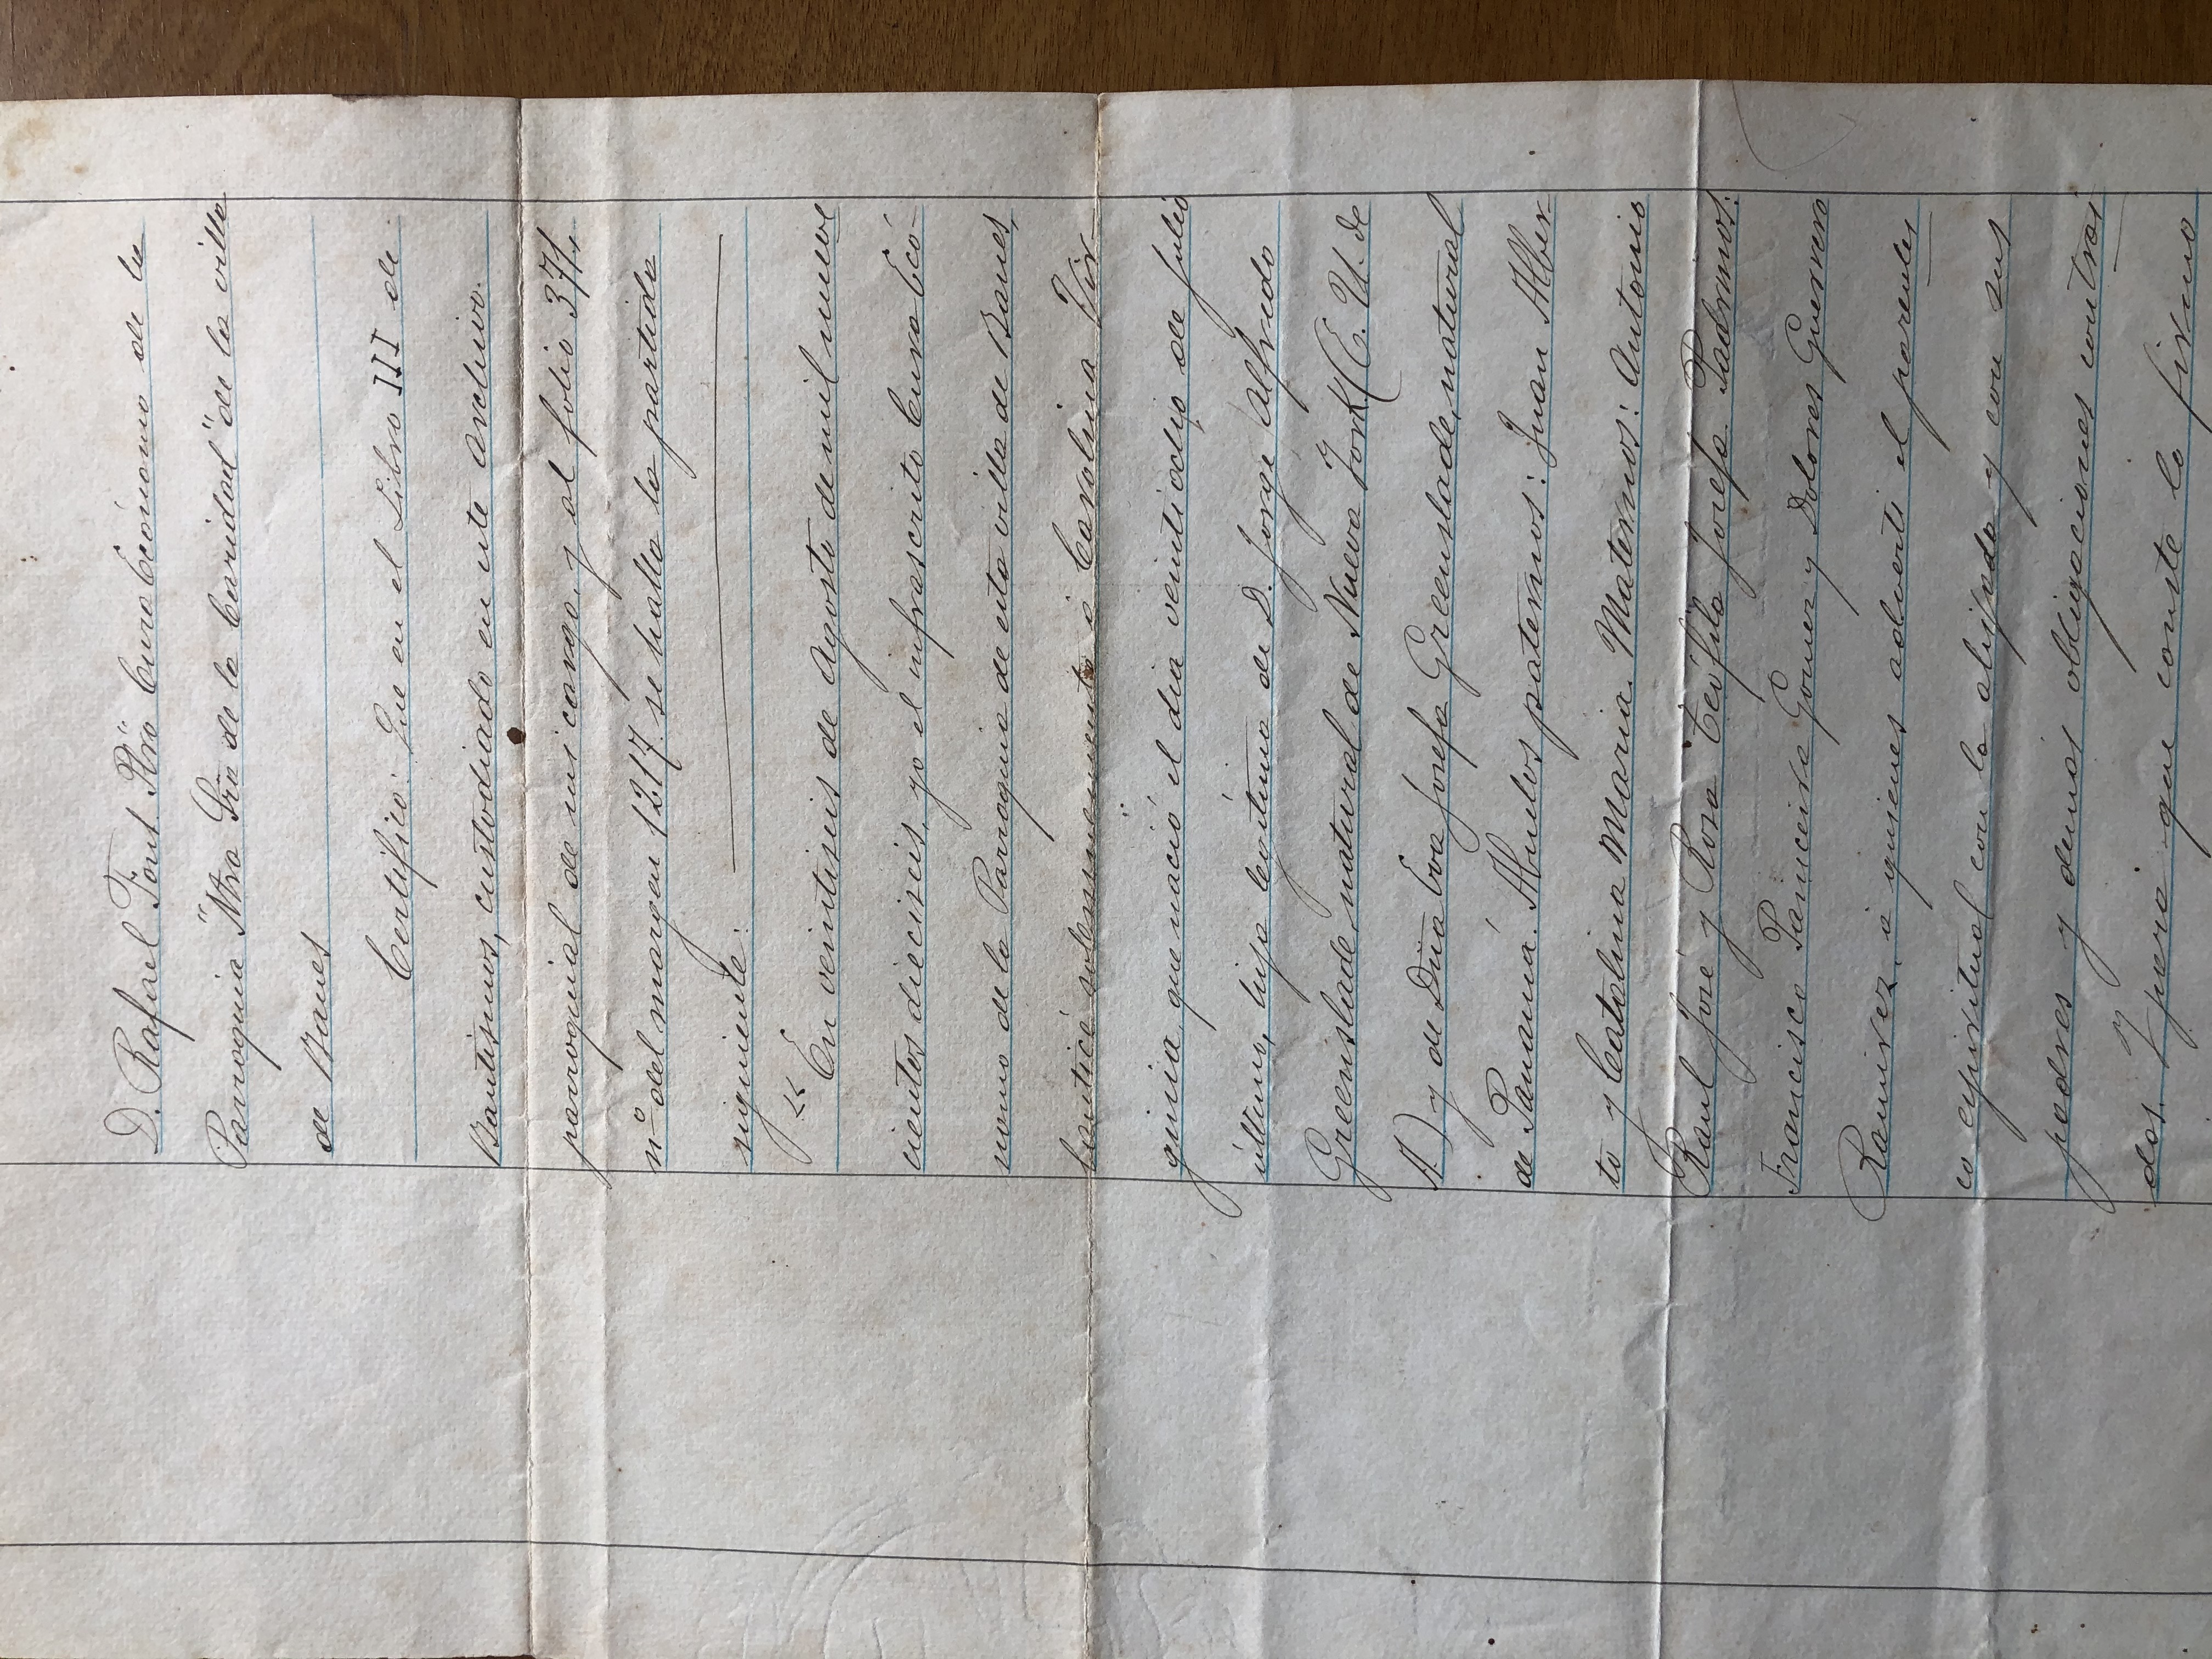 D. Rafael Font. Pbro Cura Ecónomo de la
Parroquia "Ntra Sra de la Caridad" de la villa
de Banes
Certifico: Que en el Libro III de
Bautismos, custodiado en este Archivo
parroquial de mi cargo, y al folio 371,
nº del margen 1217. se halla la partida
siguiente:
"En veintiseis de Agosto de mil nueve
cientos dieciseis, yo el infrascrito Cura Ecó-
nomo de la Parroquia de esta villa de Banes,
bauticé solemnemente á Carolina Vir-
ginia, que nació el dia veintiocho de Julio
último, hija legítima de D. Jorge Alfredo
Greenslade, natural de Nueva York (E. U. de
A.) y de Dña Eva Josefa Greenslade, natural
de Panamá. Abuelos paternos: Juan Alber-
to y Catalina Maria. Maternos: Antonio
Raul José y Rosa Teófila Josefa. Padrinos:
Francisco Gomez y Dolores Guerrero
Ramirez, á quienes advertí el parentes
co espiritual con la ahijada y con sus
padres y demás obligaciones contraí
das. Y para que conste lo firmo